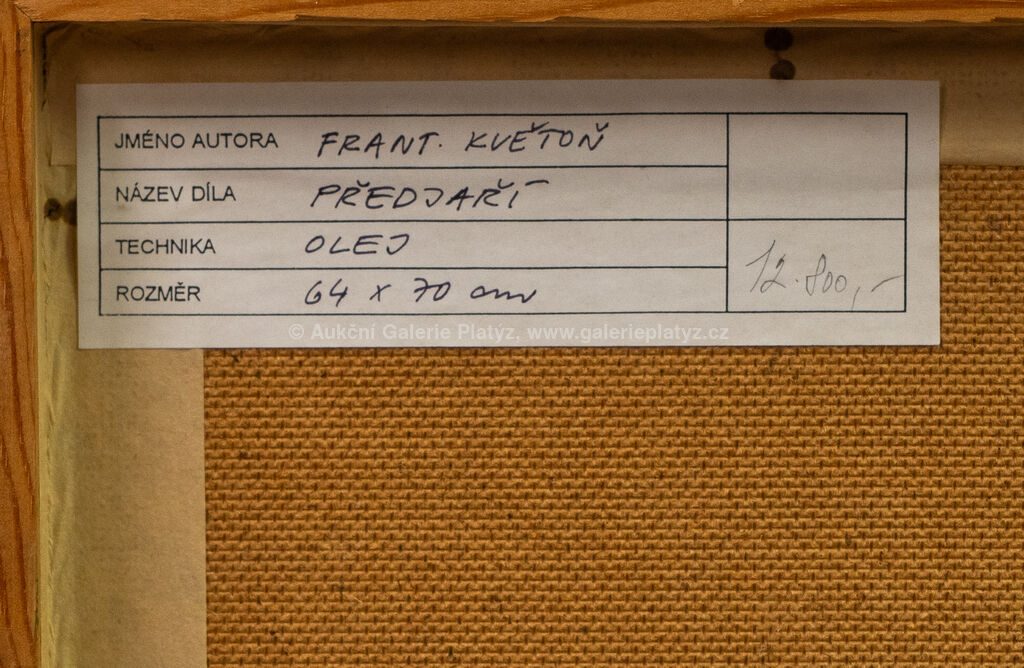 JMÉNO AUTORA FRANT. KVĚTOŇ
NÁZEV DÍLA PŘEDJAŘÍ
TECHNIKA OLEJ
ROZMĚR 64 x 70 cm
12.800,-
© Aukční Galerie Platýz, www.galerieplatyz.cz